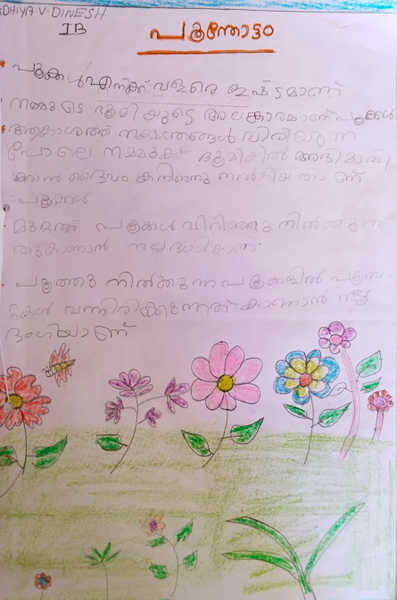 DHIYA V. DINESH
I B
പൂന്തോട്ടം
പൂക്കൾ എനിക്ക് വളരെ ഇഷ്ടമാണ്
നമ്മുടെ ഭൂമിയുടെ അലങ്കാരമാണ് പൂക്കൾ
ആകാശത്ത് നക്ഷത്രങ്ങൾ വിരിയുന്ന
പോലെ നമുക്ക് ഭൂമിയിൽ
ദൈവം കനിഞ്ഞു നൽകിയതാണ്
പൂക്കൾ
മുറ്റത്ത് പൂക്കൾ വിറിഞ്ഞു നിൽക്കുന്ന
തുകാണാൻ നല്ല ഭംഗിയാണ്.
പൂത്തു നിൽക്കുന്ന പൂക്കളിൽ പൂമ്പാ
റ്റകൾ വന്നിരിക്കുന്നത് കാണാൻ നല്ല
ഭംഗിയാണ്